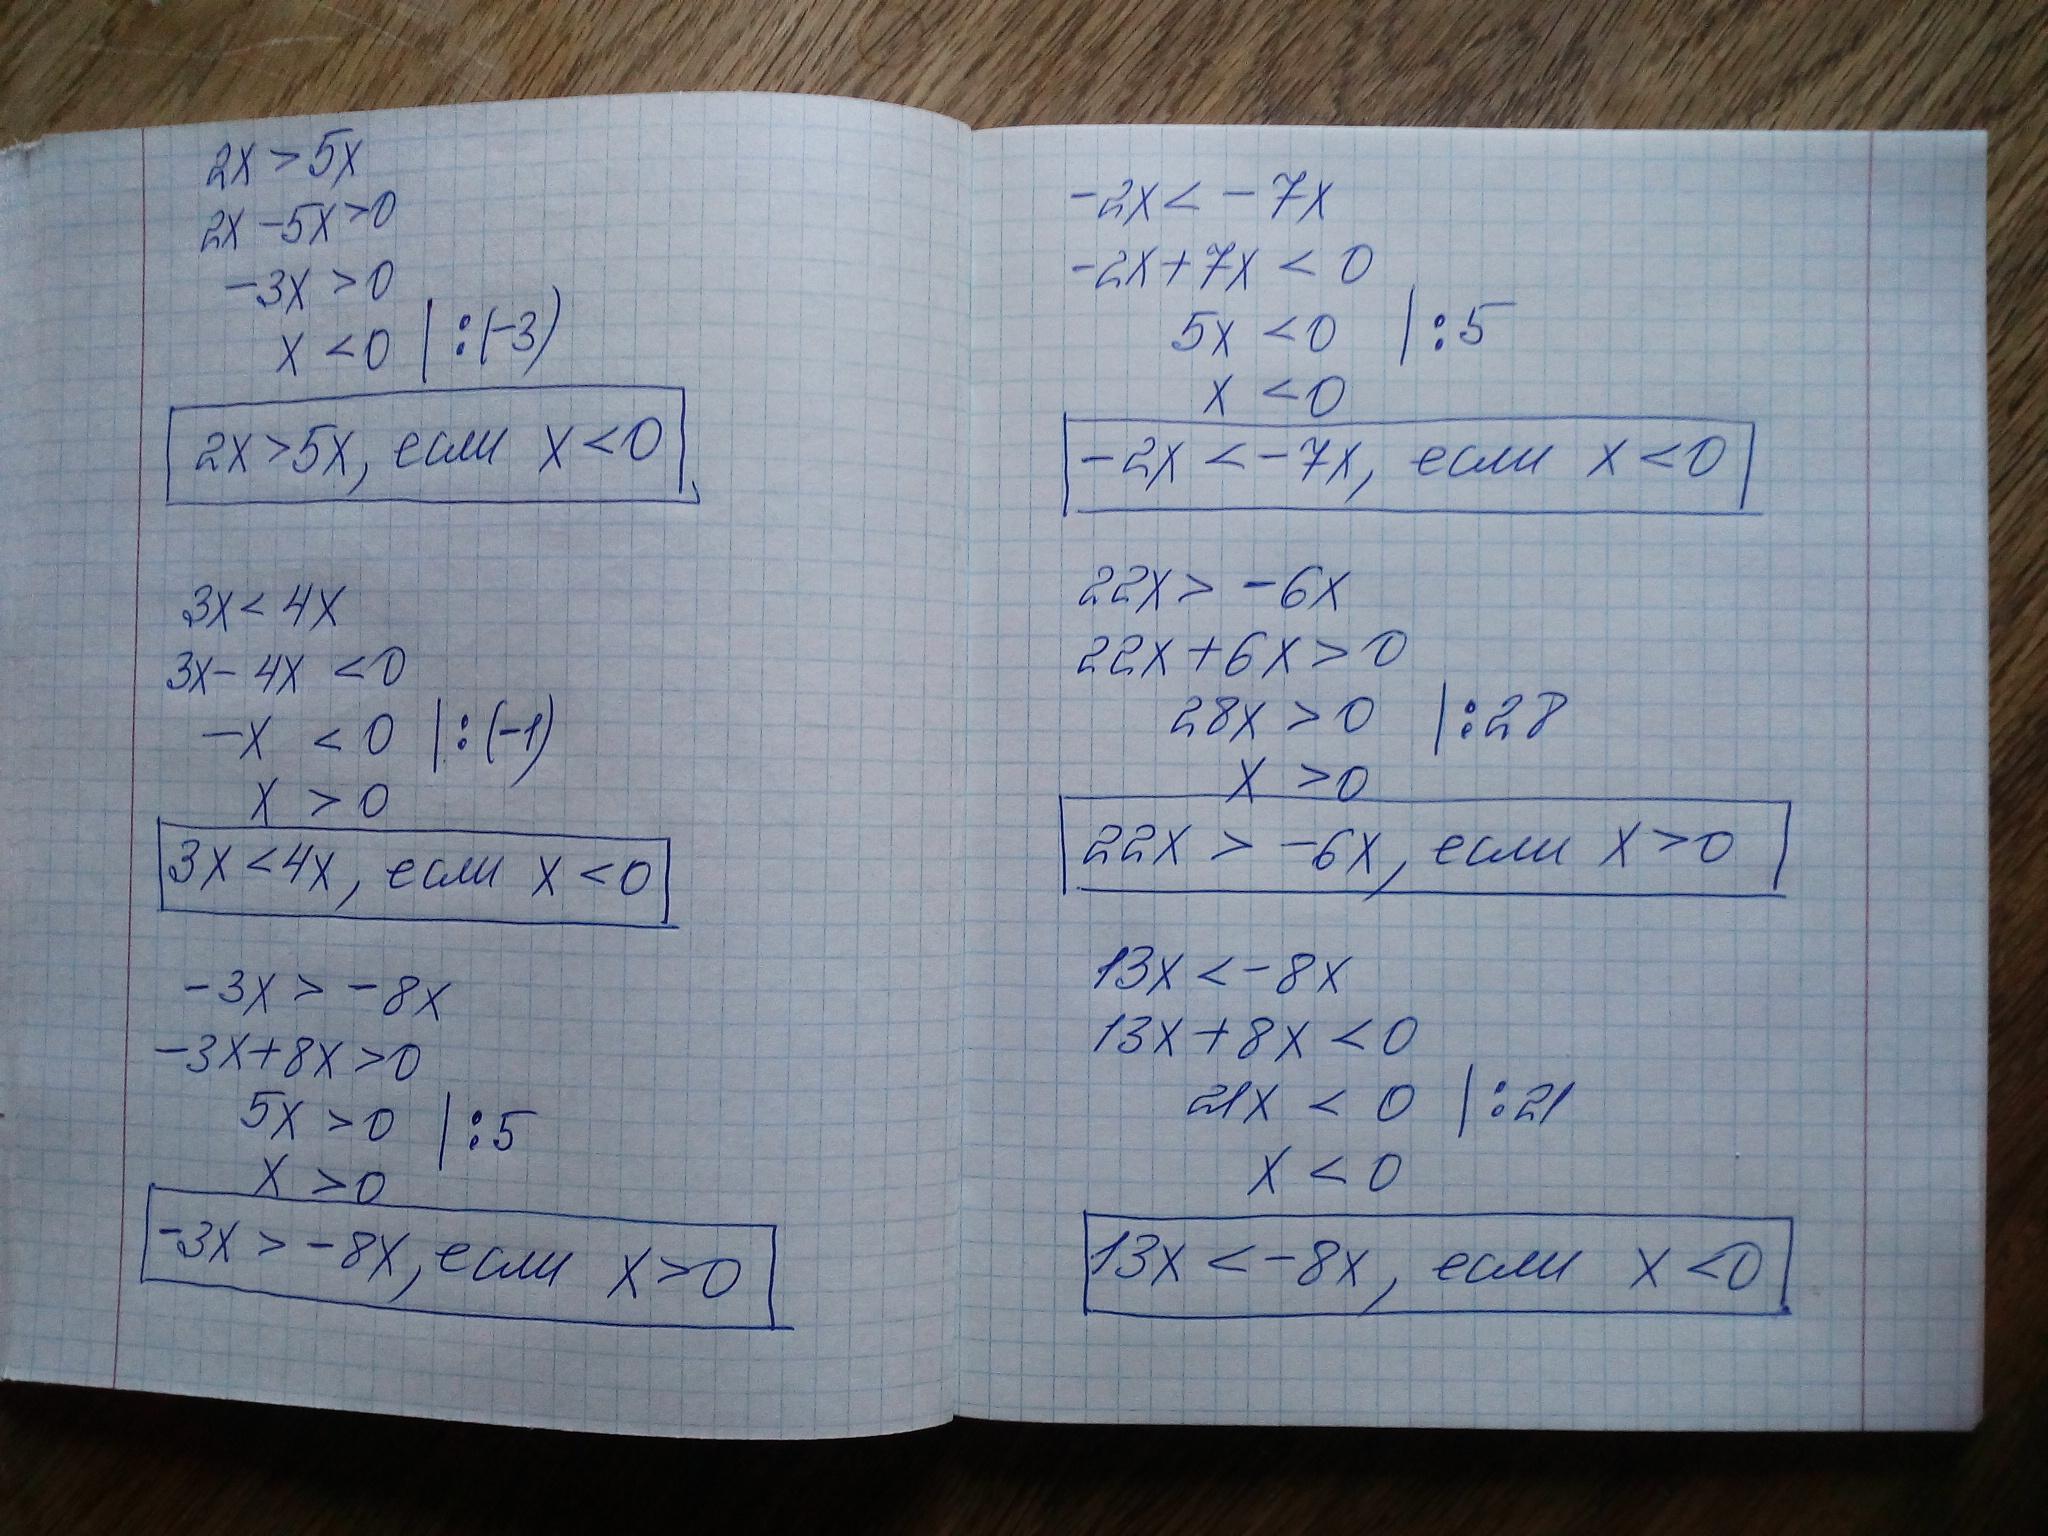 2x > 5x
2x - 5x > 0
-3x > 0
x < 0 | :(-3)
2x > 5x, если x < 0
3x < 4x
3x - 4x < 0
-x < 0 | :(-1)
x > 0
3x < 4x, если x < 0
-3x > -8x
-3x + 8x > 0
5x > 0 | :5
x > 0
-3x > -8x, если x > 0
-2x < -7x
-2x + 7x < 0
5x < 0 | :5
x < 0
-2x < -7x, если x < 0
22x > -6x
22x + 6x > 0
28x > 0 | :28
x > 0
22x > -6x, если x > 0
13x < -8x
13x + 8x < 0
21x < 0 | :21
x < 0
13x < -8x, если x < 0